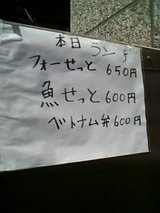 本日 ランチ
フォーせっと 650円
魚せっと 600円
ベトナム弁 600円